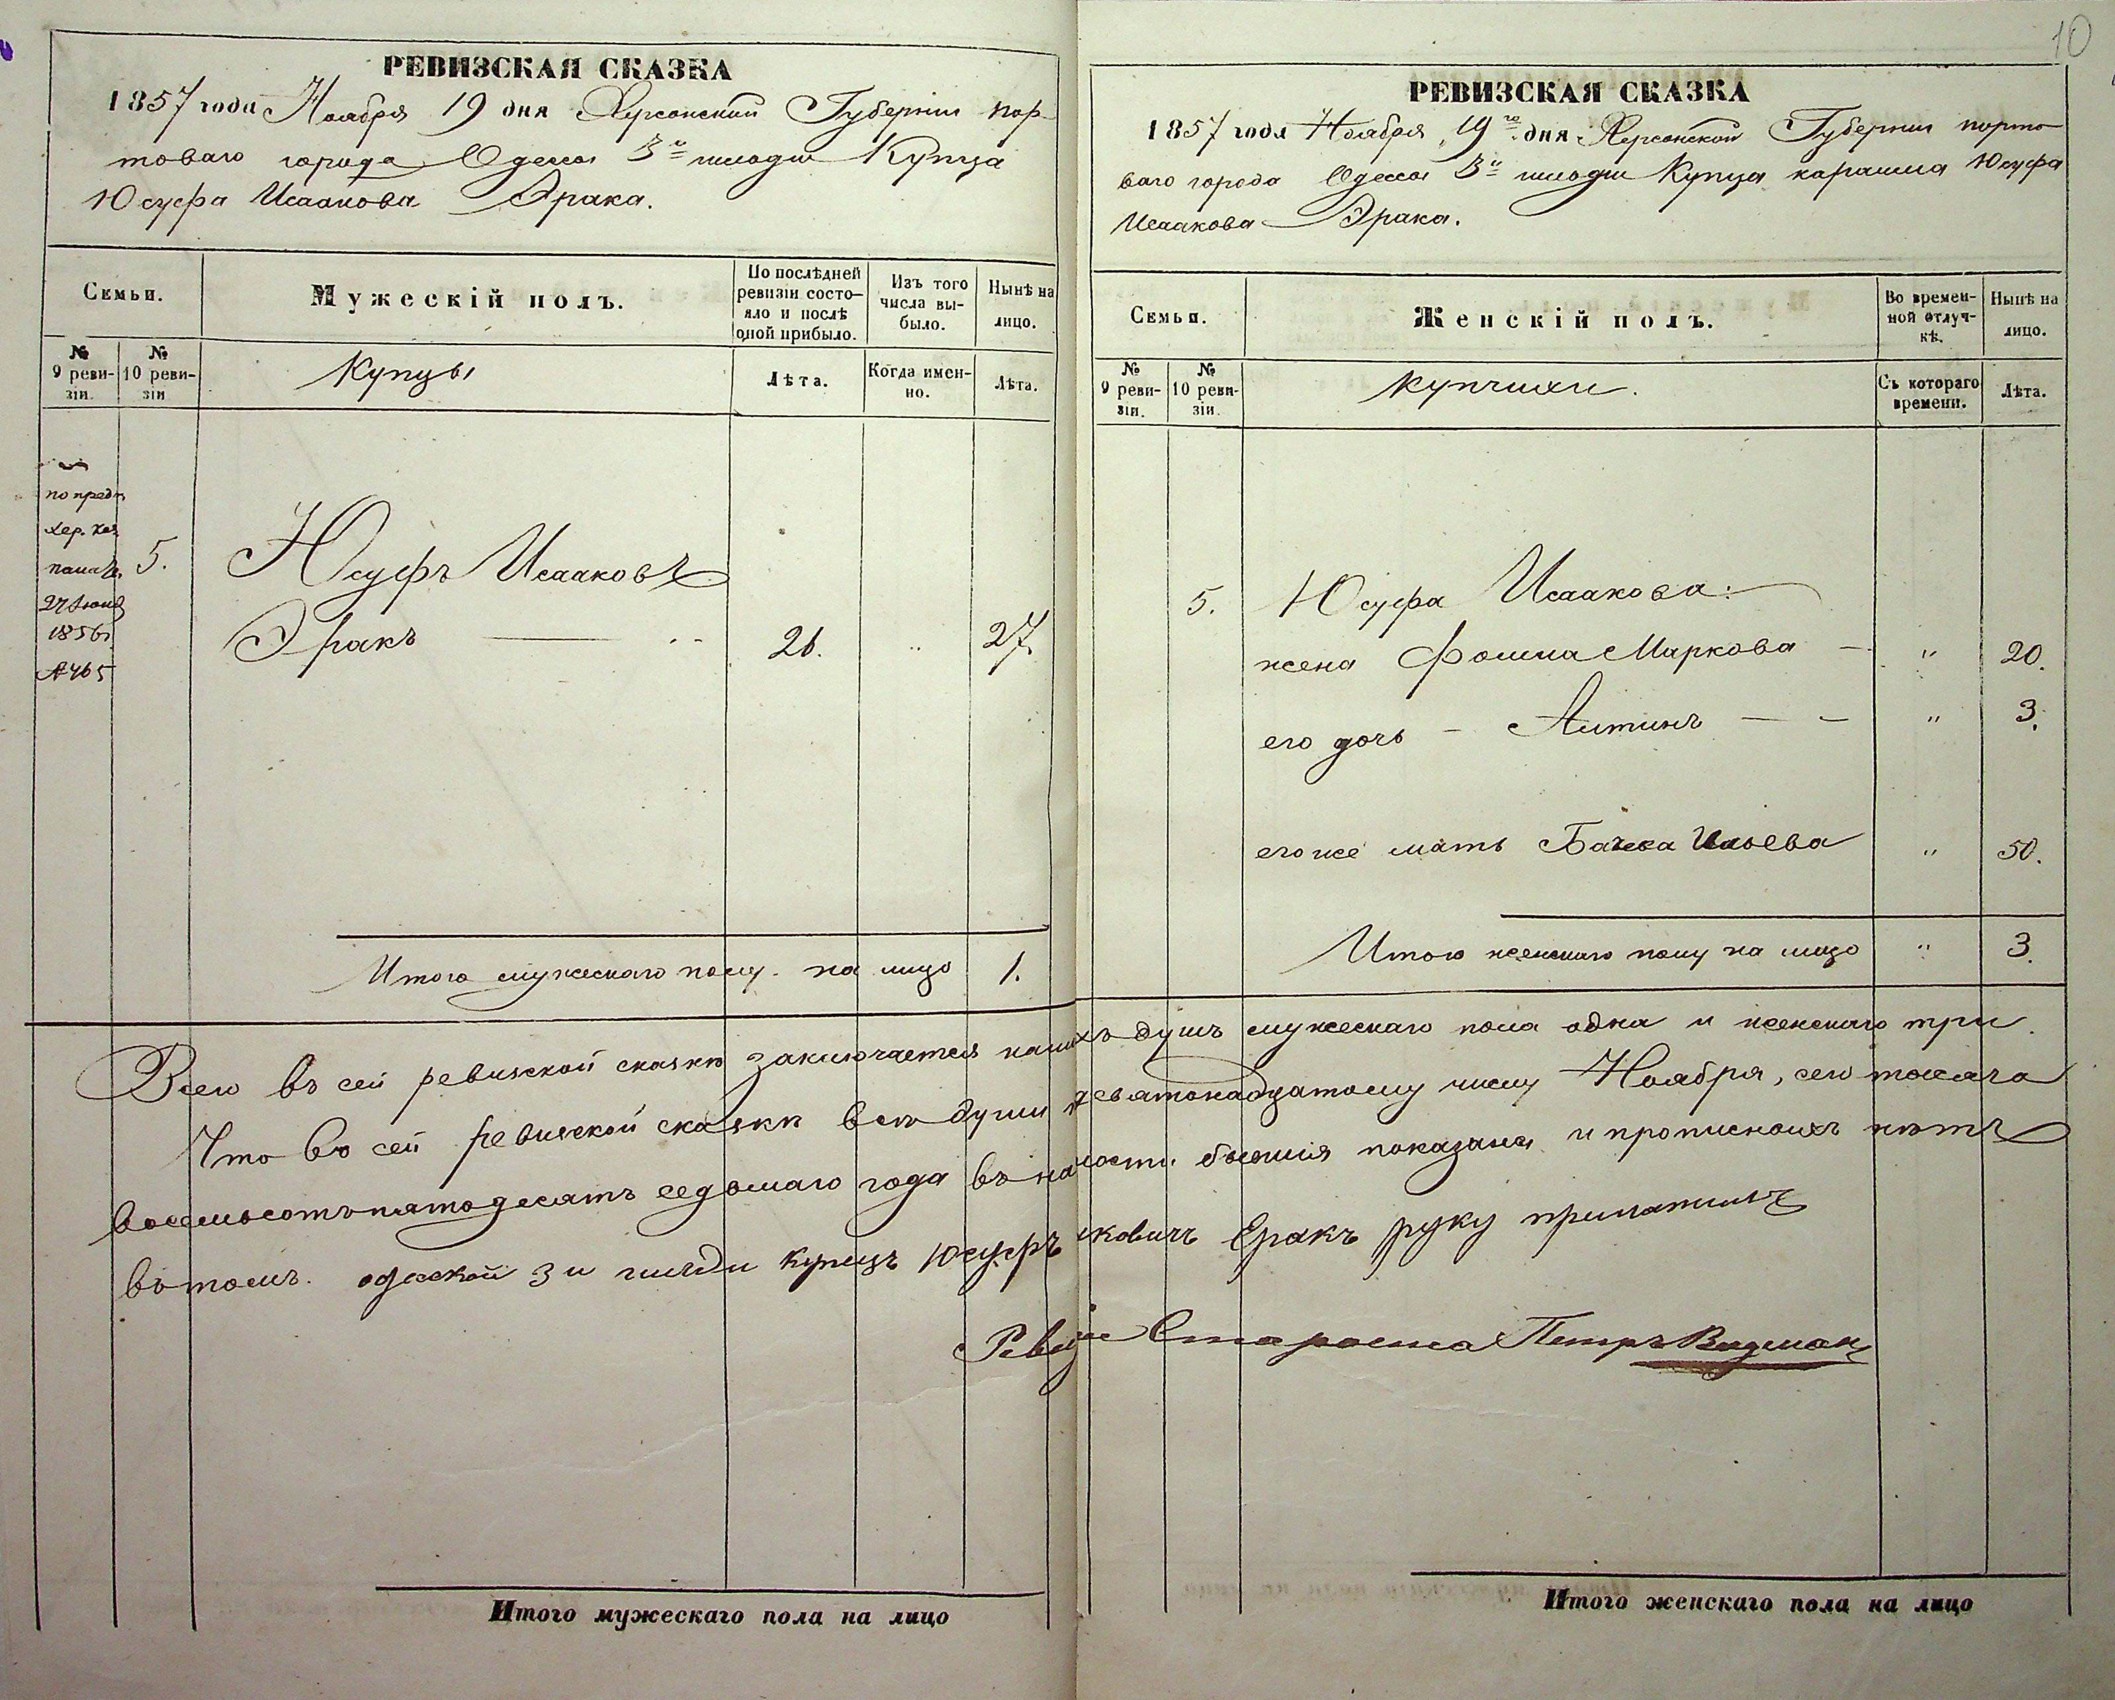 РЕВИЗСКАЯ СКАЗКА
1857 года Ноября 19 дня Херсонской Губернии пор-
товаго города Одессы 3й гильдии Купца
Юсуфа Исаакова Эрака.
Семьи.
Мужескій полъ.
По послѣдней ревизіи состо-
яло и послѣ оной прибыло.
Изъ того числа вы-
было.
Нынѣ на лицо.
№ 9 реви-
зіи.
№ 10 реви-
зіи
Купцы
Лѣта.
Когда имен-
но.
Лѣта.
по предп.
хер. каз.
палаты.
27 Іюня
1856 г.
№ 465
5.
Юсуфъ Исааковъ
Эракъ — 26. „ 27.
Итого мужескаго полу на лицо 1.
10
РЕВИЗСКАЯ СКАЗКА
1857 года Ноября 19го дня Херсонской Губернии порто-
ваго города Одессы 3й гильдии Купца караима Юсуфа
Исаакова Эрака.
Семьи.
Женскій полъ.
Во времен-
ной отлуч-
кѣ.
Нынѣ на лицо.
№ 9 реви-
зіи.
№ 10 реви-
зіи.
Купчихи.
Съ котораго времени.
Лѣта.
5. Юсуфа Исаакова:
жена Фошма Маркова — „ 20.
его дочь — Алтынъ — — „ 3.
его же мать Ильева „ 50.
Итого женскаго полу на лицо „ 3.
Всего въ сей ревизской сказкѣ заключается наличныхъ душъ мужескаго пола одна и женскаго три.
Что въ сей ревизской сказкѣ всѣ души къ девятонадцатому числу Ноября, сего тысяча
восемьсотъ пятодесятъ седьмаго года въ наличности бывшія показаны и прописныхъ нѣтъ
въ томъ. одеской 3 и гильди купецъ Юсуфъ Еракъ руку приложилъ
Староста Петръ Видман
Итого мужескаго пола на лицо
Итого женскаго пола на лицо